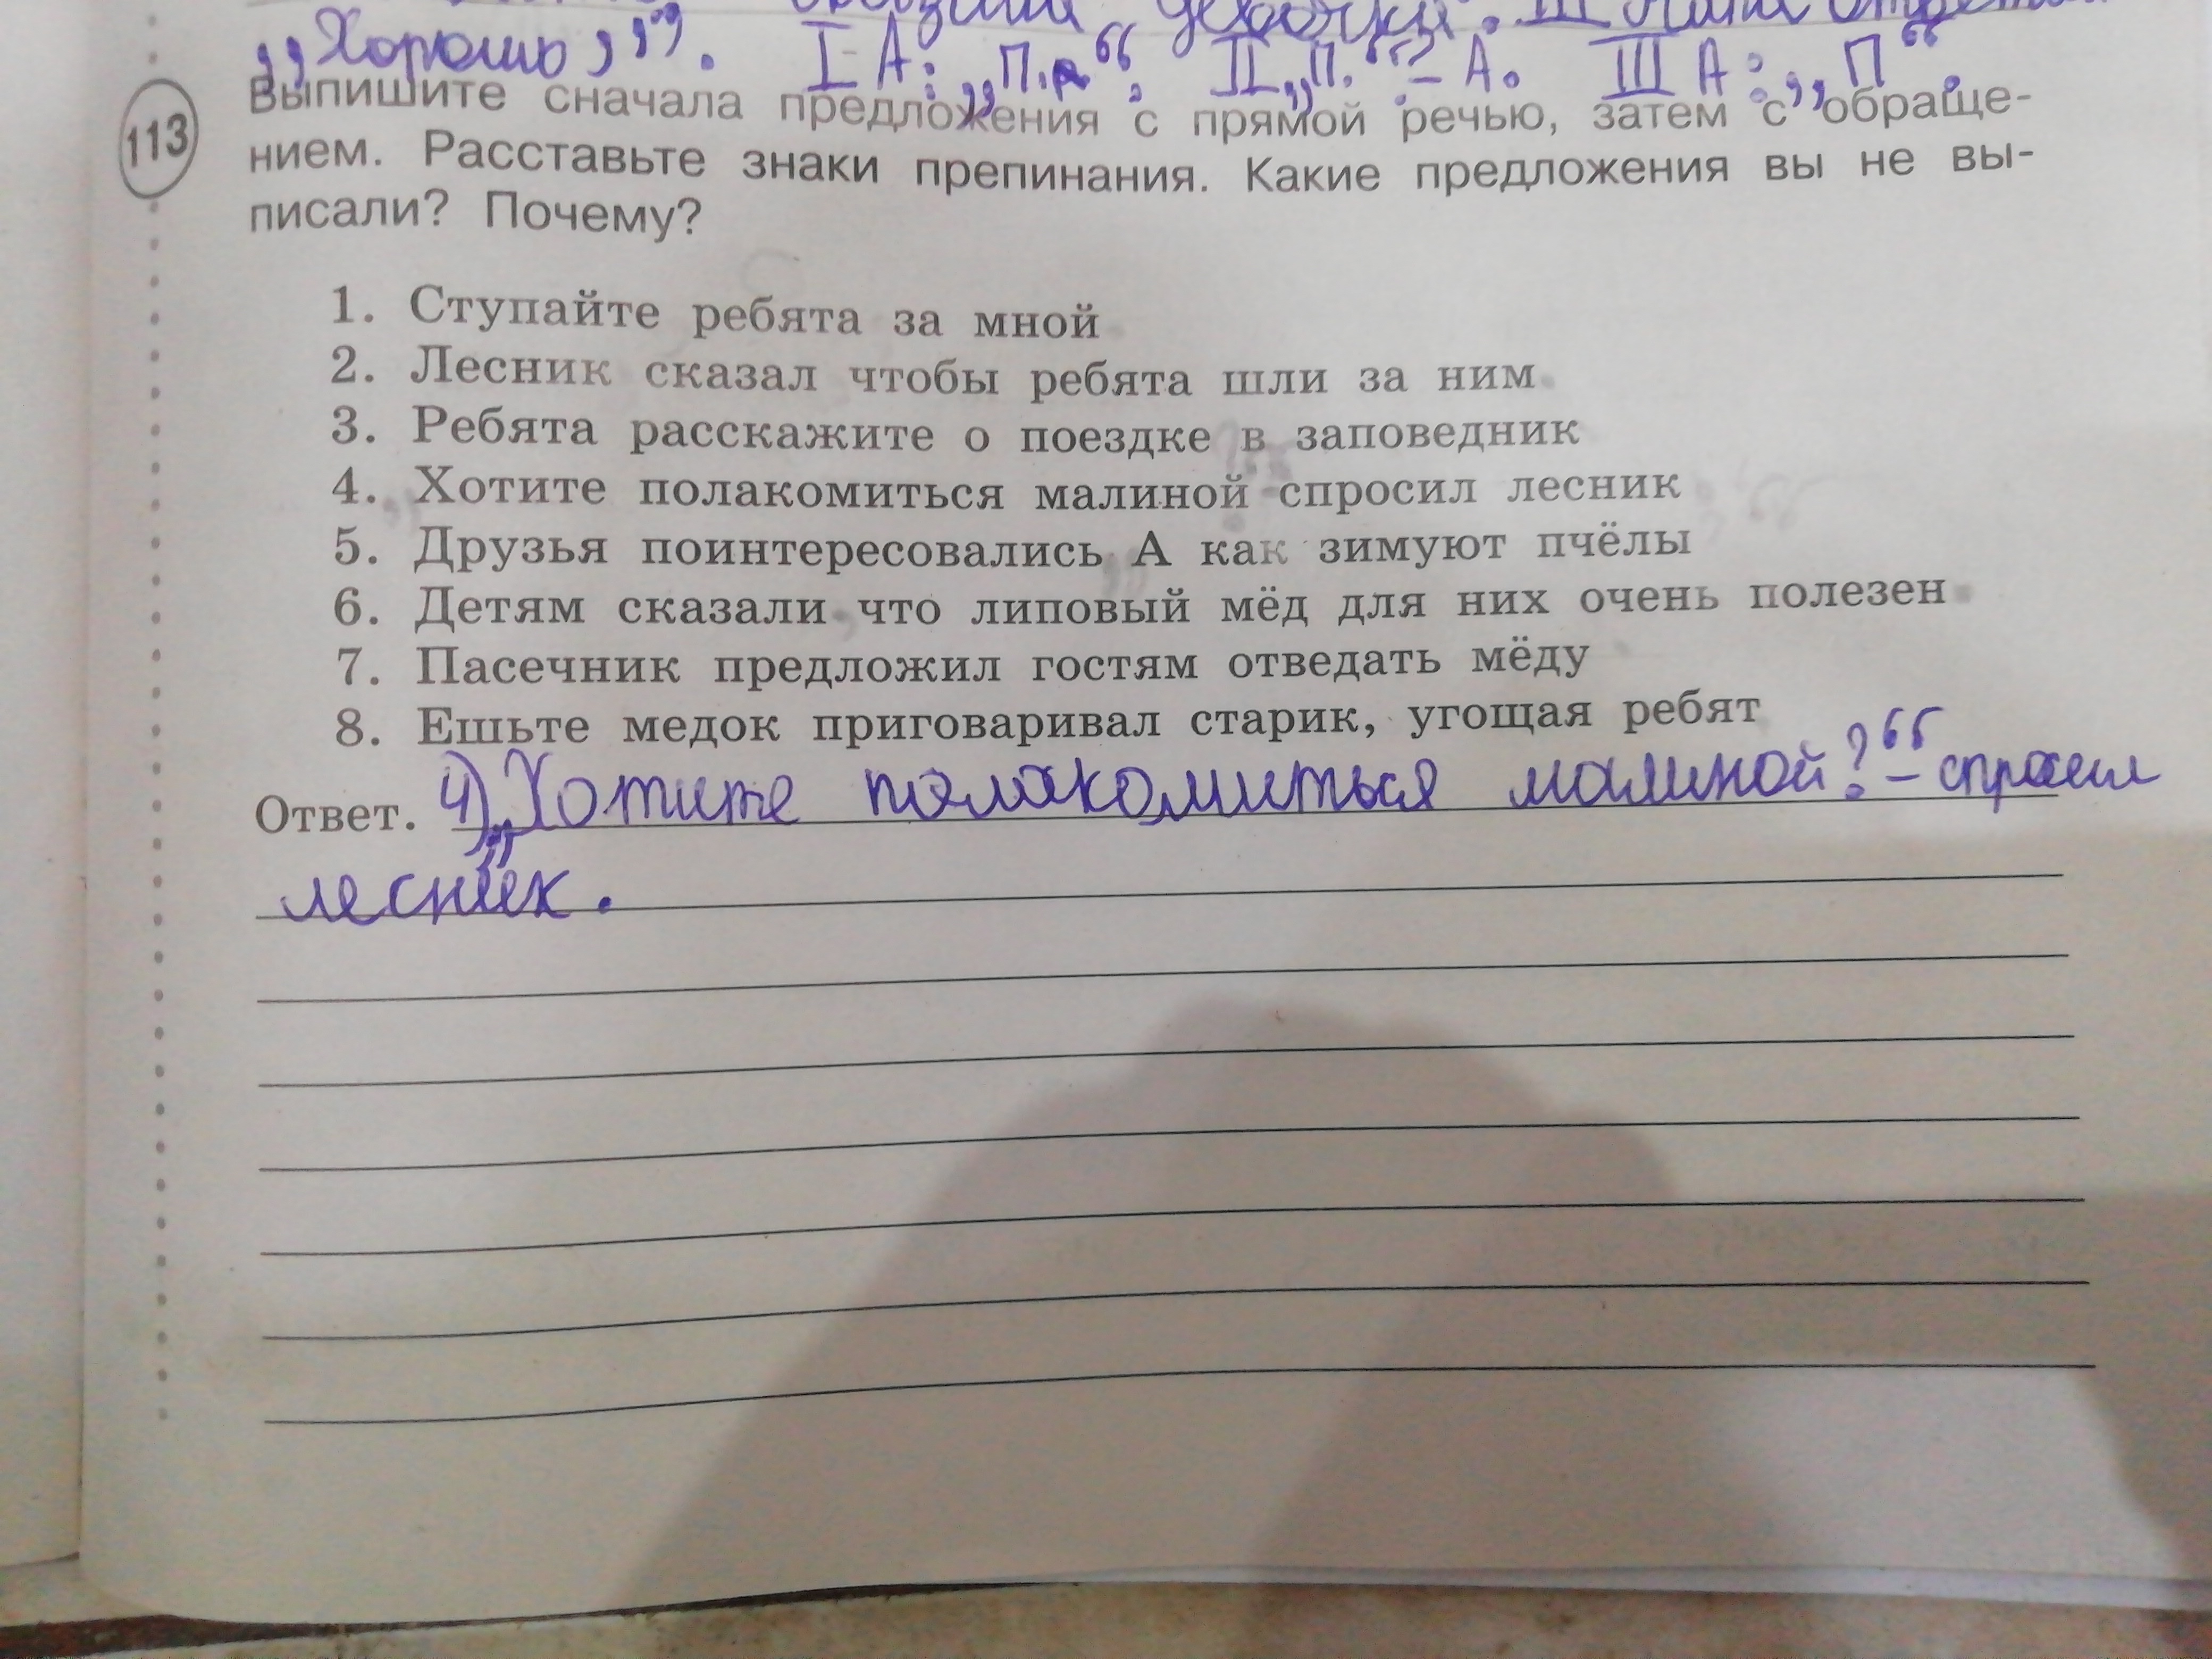 девочки. III Папа ответил
„Хорошо,". I А: „П.". II „П."? – А. III А: „П".
113
Выпишите сначала предложения с прямой речью, затем с обраще-
нием. Расставьте знаки препинания. Какие предложения вы не вы-
писали? Почему?
1. Ступайте ребята за мной
2. Лесник сказал чтобы ребята шли за ним
3. Ребята расскажите о поездке в заповедник
4. Хотите полакомиться малиной спросил лесник
5. Друзья поинтересовались А как зимуют пчёлы
6. Детям сказали что липовый мёд для них очень полезен
7. Пасечник предложил гостям отведать мёду
8. Ешьте медок приговаривал старик, угощая ребят
Ответ. 4) „Хотите полакомиться малиной?" – спросил
лесник.